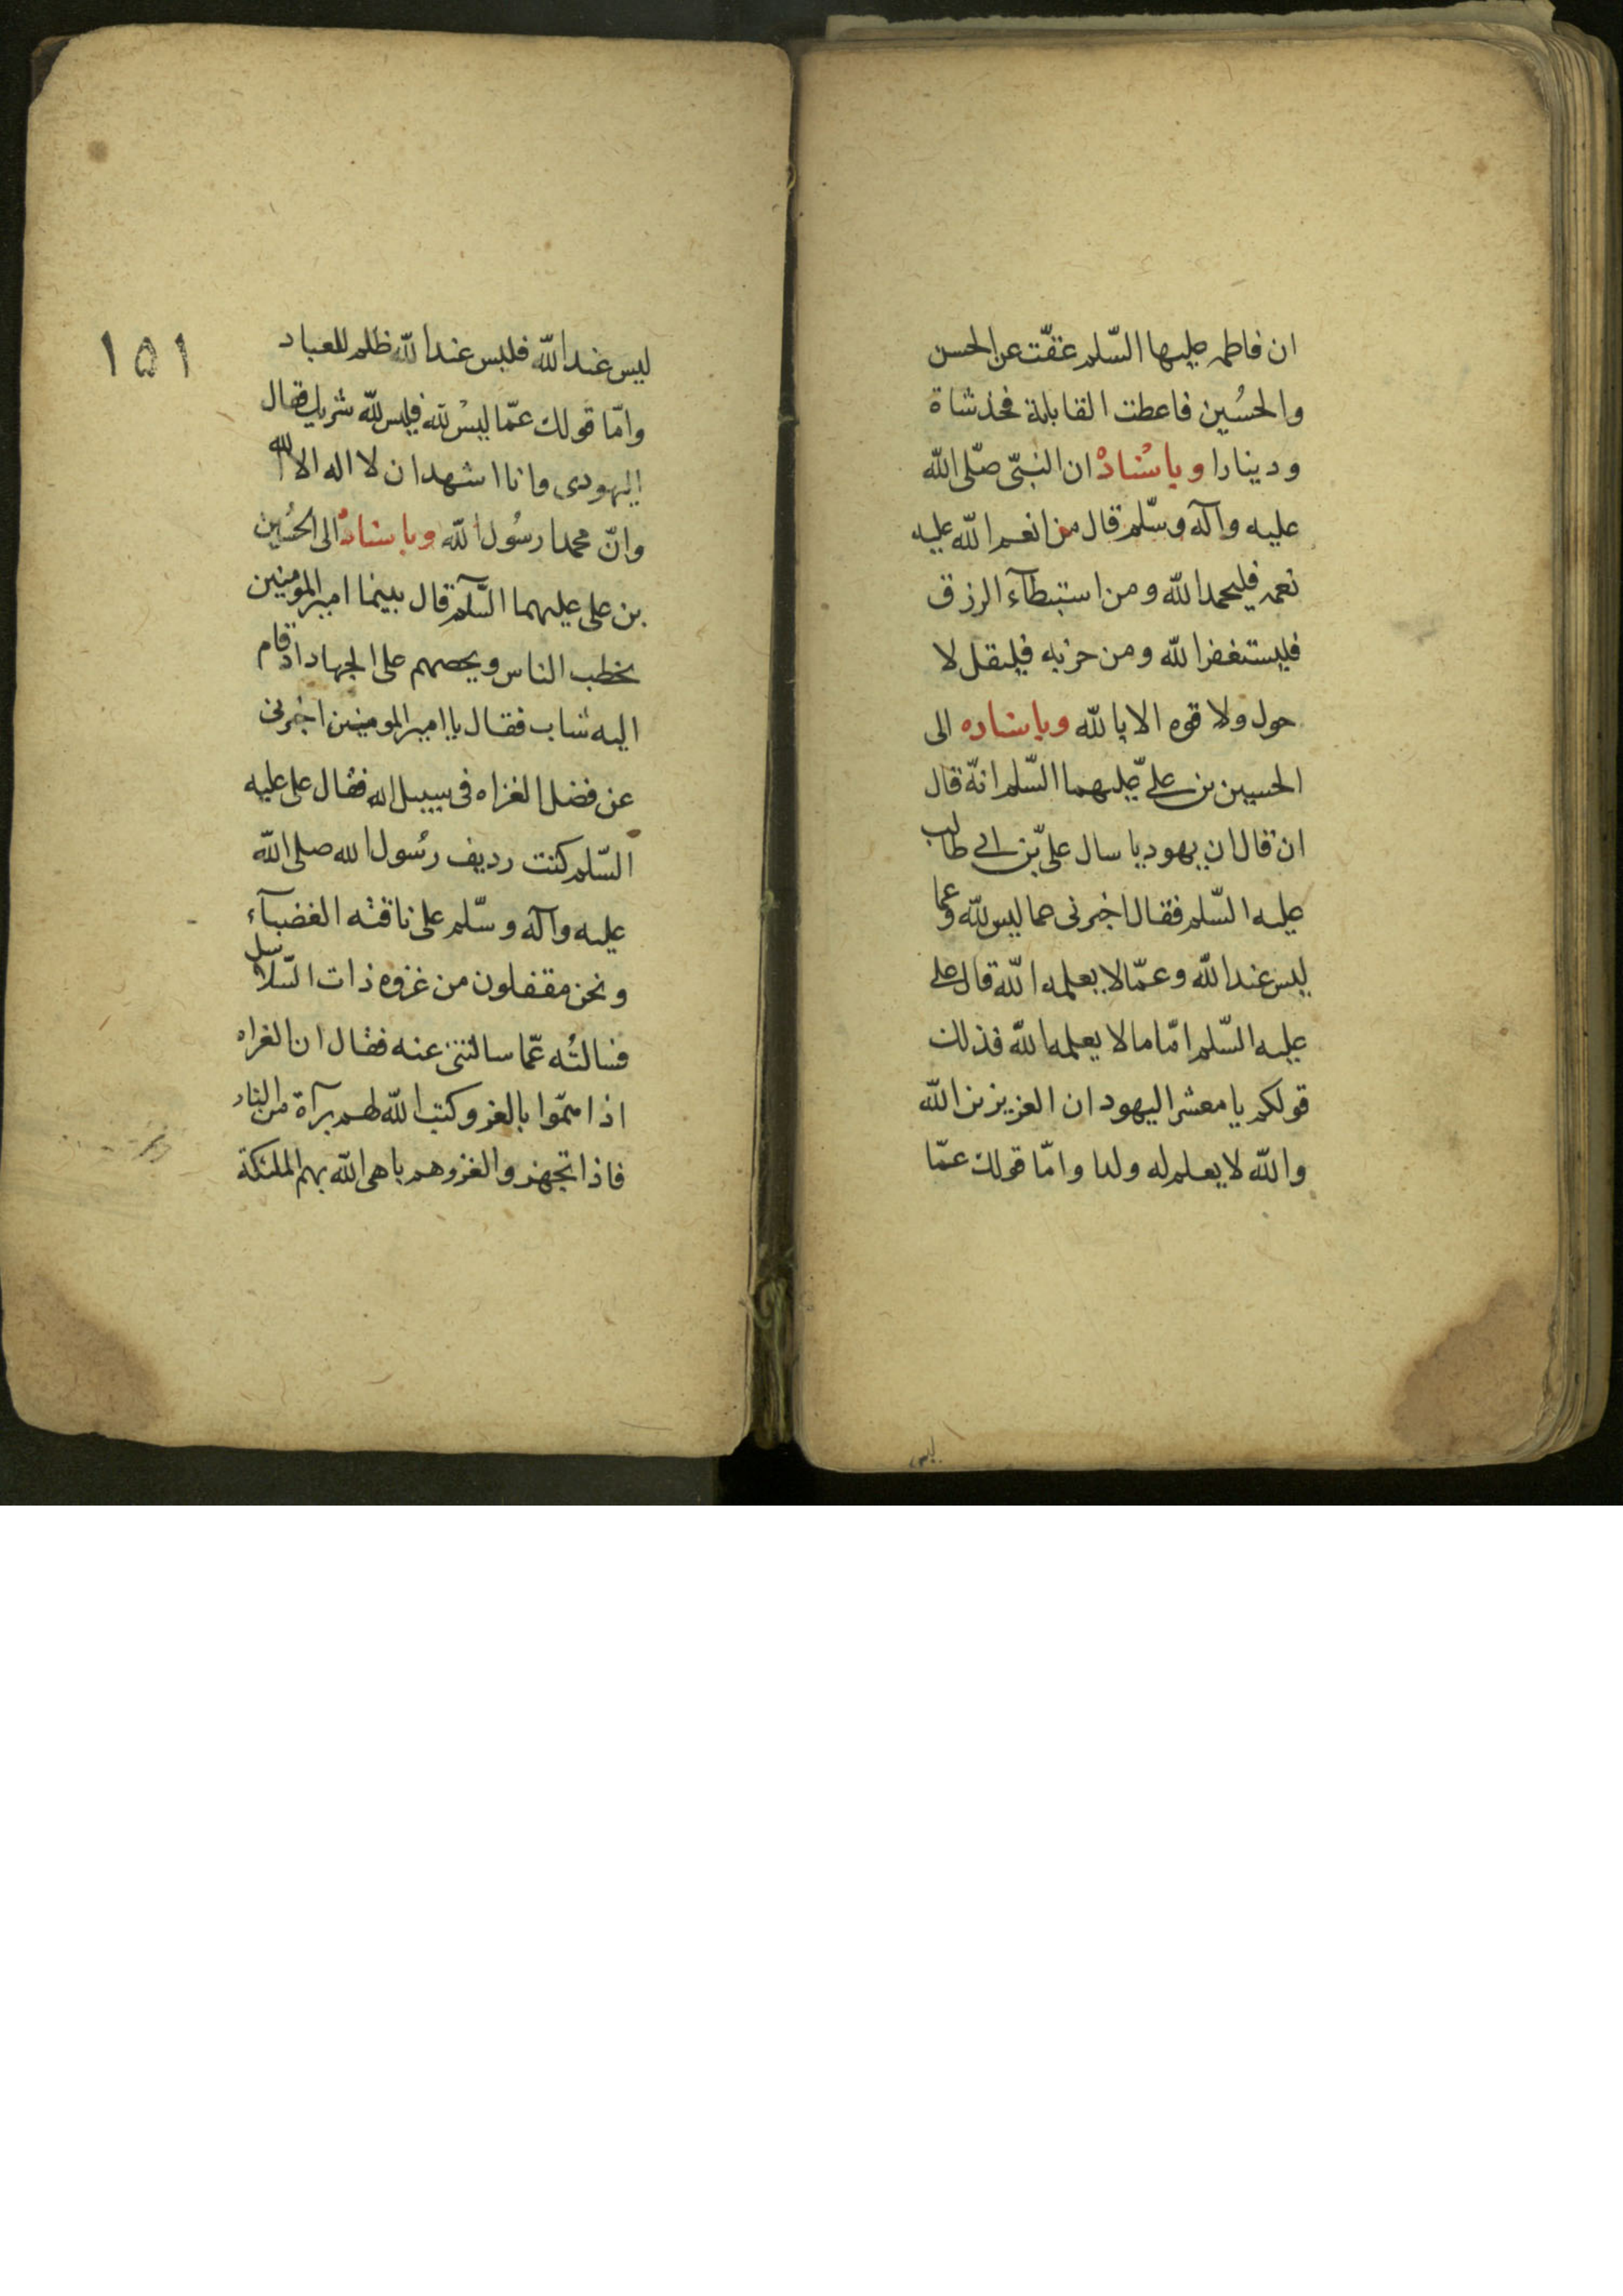 ان فاطمه عليها السّلم عقّت عن الحسن
والحسُين فاعطت القابلة فخذ شاة
ودينارا وباسْنادْ ان النبّى صلّى اللّه
عليه وآله وسّلم قال من انعم اللّه عليه
نعمه فليحمد اللّه ومن استبطآء الرزق
فليستغفر اللّه ومن حزبه فليقل لا
حول ولا قوه الا باللّه وباسناده الى
الحسين بن علىّ عليهما السّلم انهّ قال
ان قال ان يهوديا سال علىّ بن ابى طالب
عليه السّلم فقال اخبرنى عما ليس للّه وعما
ليس عند اللّه وعمّا لا يعلمه اللّه قال على
عليه السّلم امّا ما لا يعلمه اللّه فذلك
قولكم يا معشر اليهود ان العزيز بن اللّه
واللّه لا يعلم له ولدا وامّا قولك عمّا
ليس
١٥١
ليس عند اللّه فليس عند اللّه ظلم للعباد
وامّا قولك عمّا ليسْ للّه فليس للّه شريك فقال
اليهودى وانا اشهد ان لا اله الا الله
وانّ محمدا رسُول اللّه وباسنادْ الى الحسُين
بن على عليهما السَّلم قال بينما امير المومنين
يخطب الناس ويحصهم على الجهاد اذ قام
اليه شاب فقال يا امير المومنين اخبرنى
عن فضل الغزاه فى سبيل الله فقال على عليه
السّلم كنت رديف رسُول الله صلى اللّه
عليه وآله وسّلم على ناقته الغضبآء
ونحن مقفلون من غزوه ذات السّلاسل
فسالتُه عمّا سالتنى عنه فقال ان الغزاه
اذا همّوا بالغزو كتب اللّه لهم برآة من النار
فاذا تجهزوا لغزوهم باهى اللّه بهم الملئكة